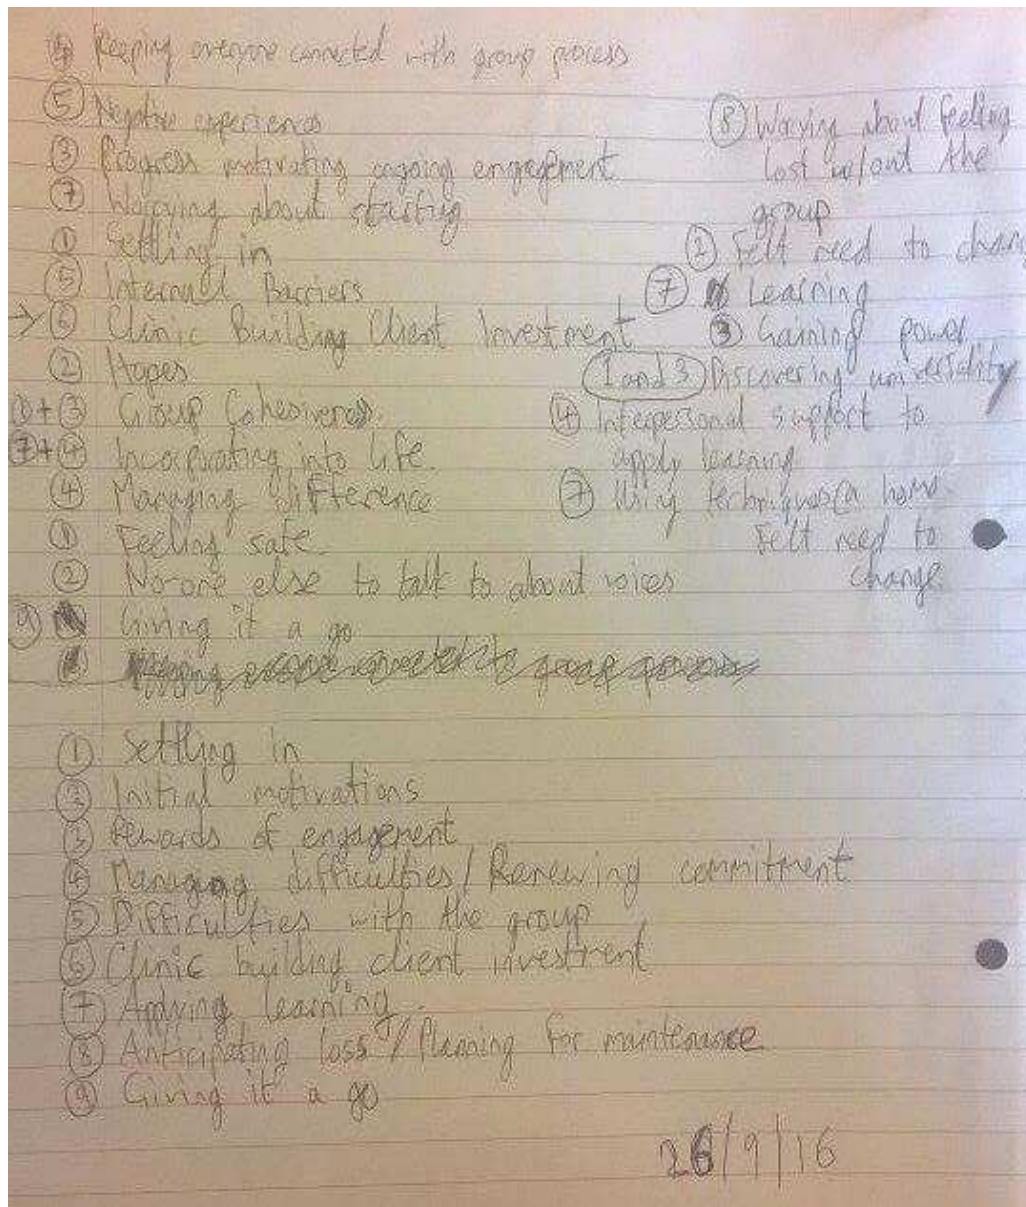 ④ Keeping everyone connected with group process
⑤ Negative experiences
③ Progress motivating ongoing engagement
⑦ Worrying about starting
① Settling in
⑤ Internal Barriers
→ ⑥ Clinic Building Client Investment
② Hopes
①+③ Group Cohesiveness
⑦+④ Incorporating into life.
④ Managing difference
① Feeling safe
② No-one else to talk to about voices
⑨ Giving it a go
⑧ Worrying about feeling
lost w/out the
group
② Felt need to chan
⑦ Learning
③ Gaining power
1 and 3 Discovering universality
④ Interpersonal support to
apply learning
⑦ Using techniques @ home
Felt need to
change
① Settling in
② Initial motivations
③ Rewards of engagement
④ Managing difficulties / Renewing commitment
⑤ Difficulties with the group
⑥ Clinic building client investment
⑦ Applying learning
⑧ Anticipating loss / Planning for maintenance
⑨ Giving it a go
26/9/16